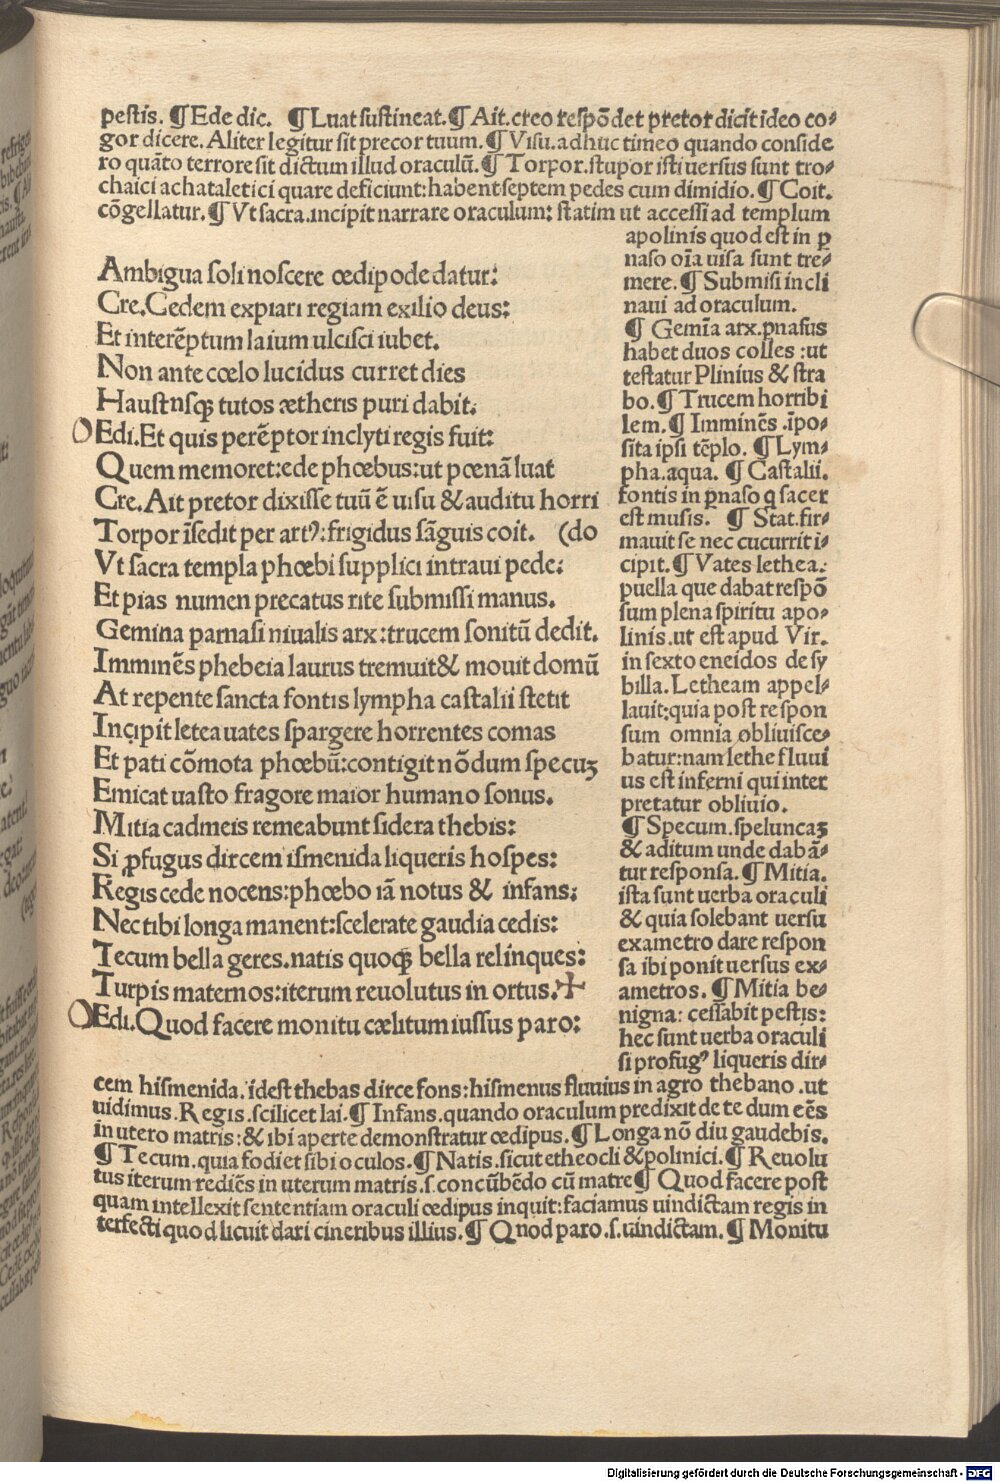 pestis. ¶ Ede dic. ¶ Luat sustineat. ¶ Ait. creo respōdet pretor dicit ideo co⸗
gor dicere. Aliter legitur sit precor tuum. ¶ Visu. adhuc timeo quando conside
ro quāto terrore sit dictum illud oraculū. ¶ Torpor. stupor isti uersus sunt tro⸗
chaici achataletici quare deficiunt: habent septem pedes cum dimidio. ¶ Coit.
cōgellatur. ¶ Vt sacra. incipit narrare oraculum: statim ut accessi ad templum
apolinis quod est in ꝑ
naso oīa uisa sunt tre⸗
mere. ¶ Submisi incli
naui ad oraculum.
¶ Gemīa arx. ꝑnasus
habet duos colles : ut
testatur Plinius & stra
bo. ¶ Trucem horribi
lem. ¶ Imminēs .īpo⸗
sita ipsi tēplo. ¶ Lym⸗
pha. aqua. ¶ Castalii.
fontis in ꝑnaso q sacer
est musis. ¶ Stat. fir⸗
mauit se nec cucurrit i⸗
cipit. ¶ Vates lethea.
puella que dabat respō
sum plena spiritu apo⸗
linis. ut est apud Vir.
in sexto eneidos de sy
billa. Letheam appel⸗
lauit: quia post respon
sum omnia obliuisce⸗
batur: nam lethe fluui
us est inferni qui inter
pretatur obliuio.
¶ Specum. speluncaꝫ
& aditum unde dabā⸗
tur responsa. ¶ Mitia.
ista sunt uerba oraculi
& quia solebant uersu
exametro dare respon
sa ibi ponit uersus ex⸗
ametros. ¶ Mitia be⸗
nigna: cessabit pestis:
hec sunt uerba oraculi
si profugꝰ liqueris dir⸗
Ambigua soli noscere œdipode datur:
Cre. Cedem expiari regiam exilio deus:
Et interēptum laium ulcisci iubet.
Non ante cœlo lucidus curret dies
Haustnsqꝫ tutos ætheris puri dabit.
Edi. Et quis perēptor inclyti regis fuit:
Quem memoret: ede phœbus: ut pœnā luat
Cre. Ait pretor dixisse tuū ē uisu & auditu horri
Torpor īsedit per artꝰ: frigidus sāguis coit. (do
Vt sacra templa phœbi supplici intraui pede:
Et pias numen precatus rite submissi manus.
Gemina parnasi niualis arx: trucem sonitū dedit.
Imminēs phebeia laurus tremuit & mouit domū
At repente sancta fontis lympha castalii stetit
Incipit letea uates spargere horrentes comas
Et pati cōmota phœbū: contigit nōdum specuꝫ
Emicat uasto fragore maior humano sonus.
Mitia cadmeis remeabunt sidera thebis:
Si ꝓfugus dircem ismenida liqueris hospes:
Regis cede nocens: phœbo iā notus & infans:
Nec tibi longa manent: scelerate gaudia cedis:
Tecum bella geres. natis quoqꝫ bella relinques:
Turpis maternos: iterum reuolutus in ortus.
Edi. Quod facere monitu cælitum iussus paro:
cem hismenida. idest thebas dirce fons: hismenus fluuius in agro thebano .ut
uidimus. Regis. scilicet lai. ¶ Infans. quando oraculum predixit de te dum eēs
in utero matris: & ibi aperte demonstratur œdipus. ¶ Longa nō diu gaudebis.
¶ Tecum. quia fodiet sibi oculos. ¶ Natis. sicut etheocli & polinici. ¶ Reuolu
tus iterum rediēs in uterum matris .s. concūbēdo cū matre ¶ Quod facere post
quam intellexit sententiam oraculi œdipus inquit: faciamus uindictam regis in
terfecti quod licuit dari cineribus illius. ¶ Qnod paro .s. uindictam. ¶ Monitu
Digitalisierung gefördert durch die Deutsche Forschungsgemeinschaft - DFG